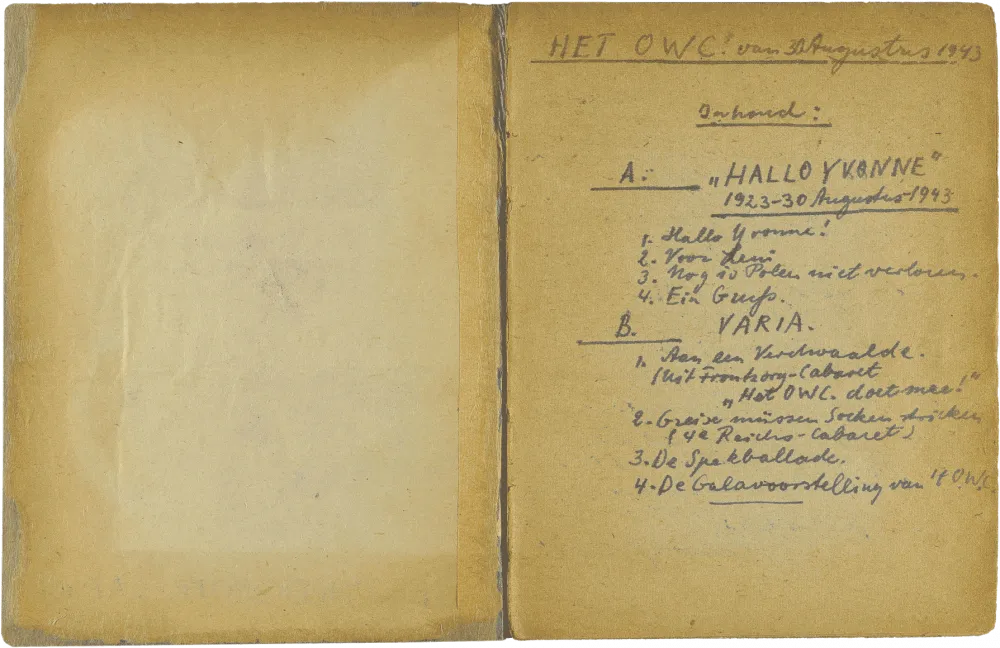 HET OWC. van 30 Augustus 1943
Inhoud:
A. „HALLO YVONNE"
1923-30 Augustus-1943
1. Hallo Yvonne!
2. Voor Leni
3. Nog is Polen niet verloren.
4. Ein Gruß.
B. VARIA.
1. Aan een Verdwaalde.
(Uit Frontzorg-Cabaret
„Het OWC. doet mee!"
2. Greise müssen Socken stricken
(4e Reichs-Cabaret)
3. De Spekballade.
4. De Galavoorstelling van 't O.W.C.